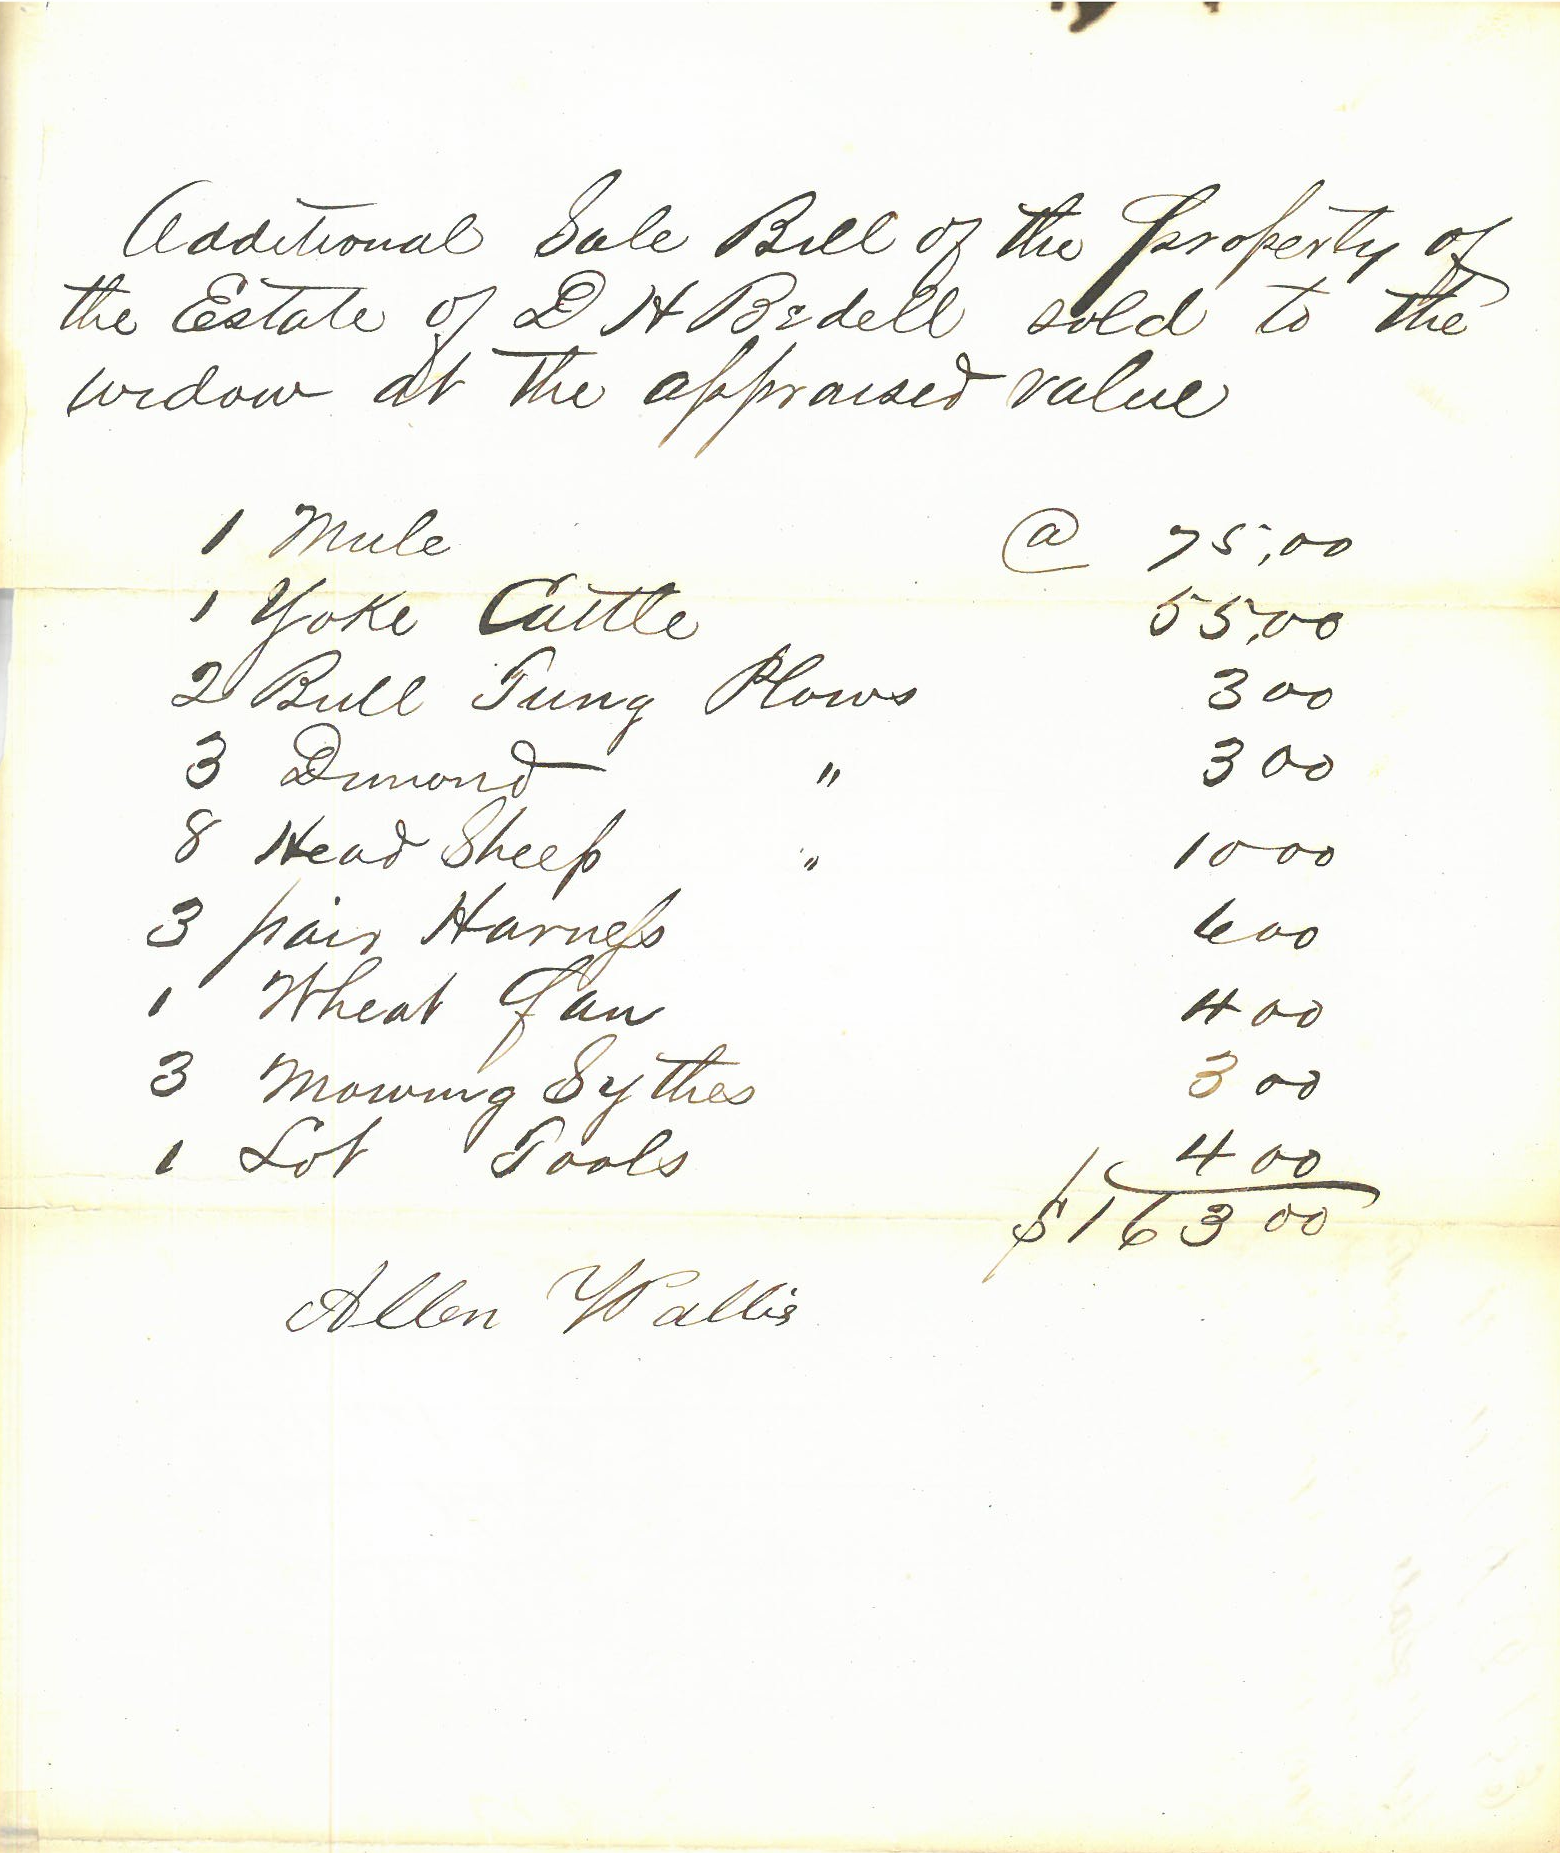 Additional Sale Bill of the Property of
the Estate of D H Bedell sold to the
widow at the appraised value
1 Mule @ 75,00
1 Yoke Cattle 55,00
2 Bull Tung Plows 3 00
3 Dimond " 3 00
8 Head Sheep " 10 00
3 pair Harness 6 00
1 Wheat fan 4 00
3 Mowing Sythes 3 00
1 Lot Tools 4 00
$163 00
Allen Wallis